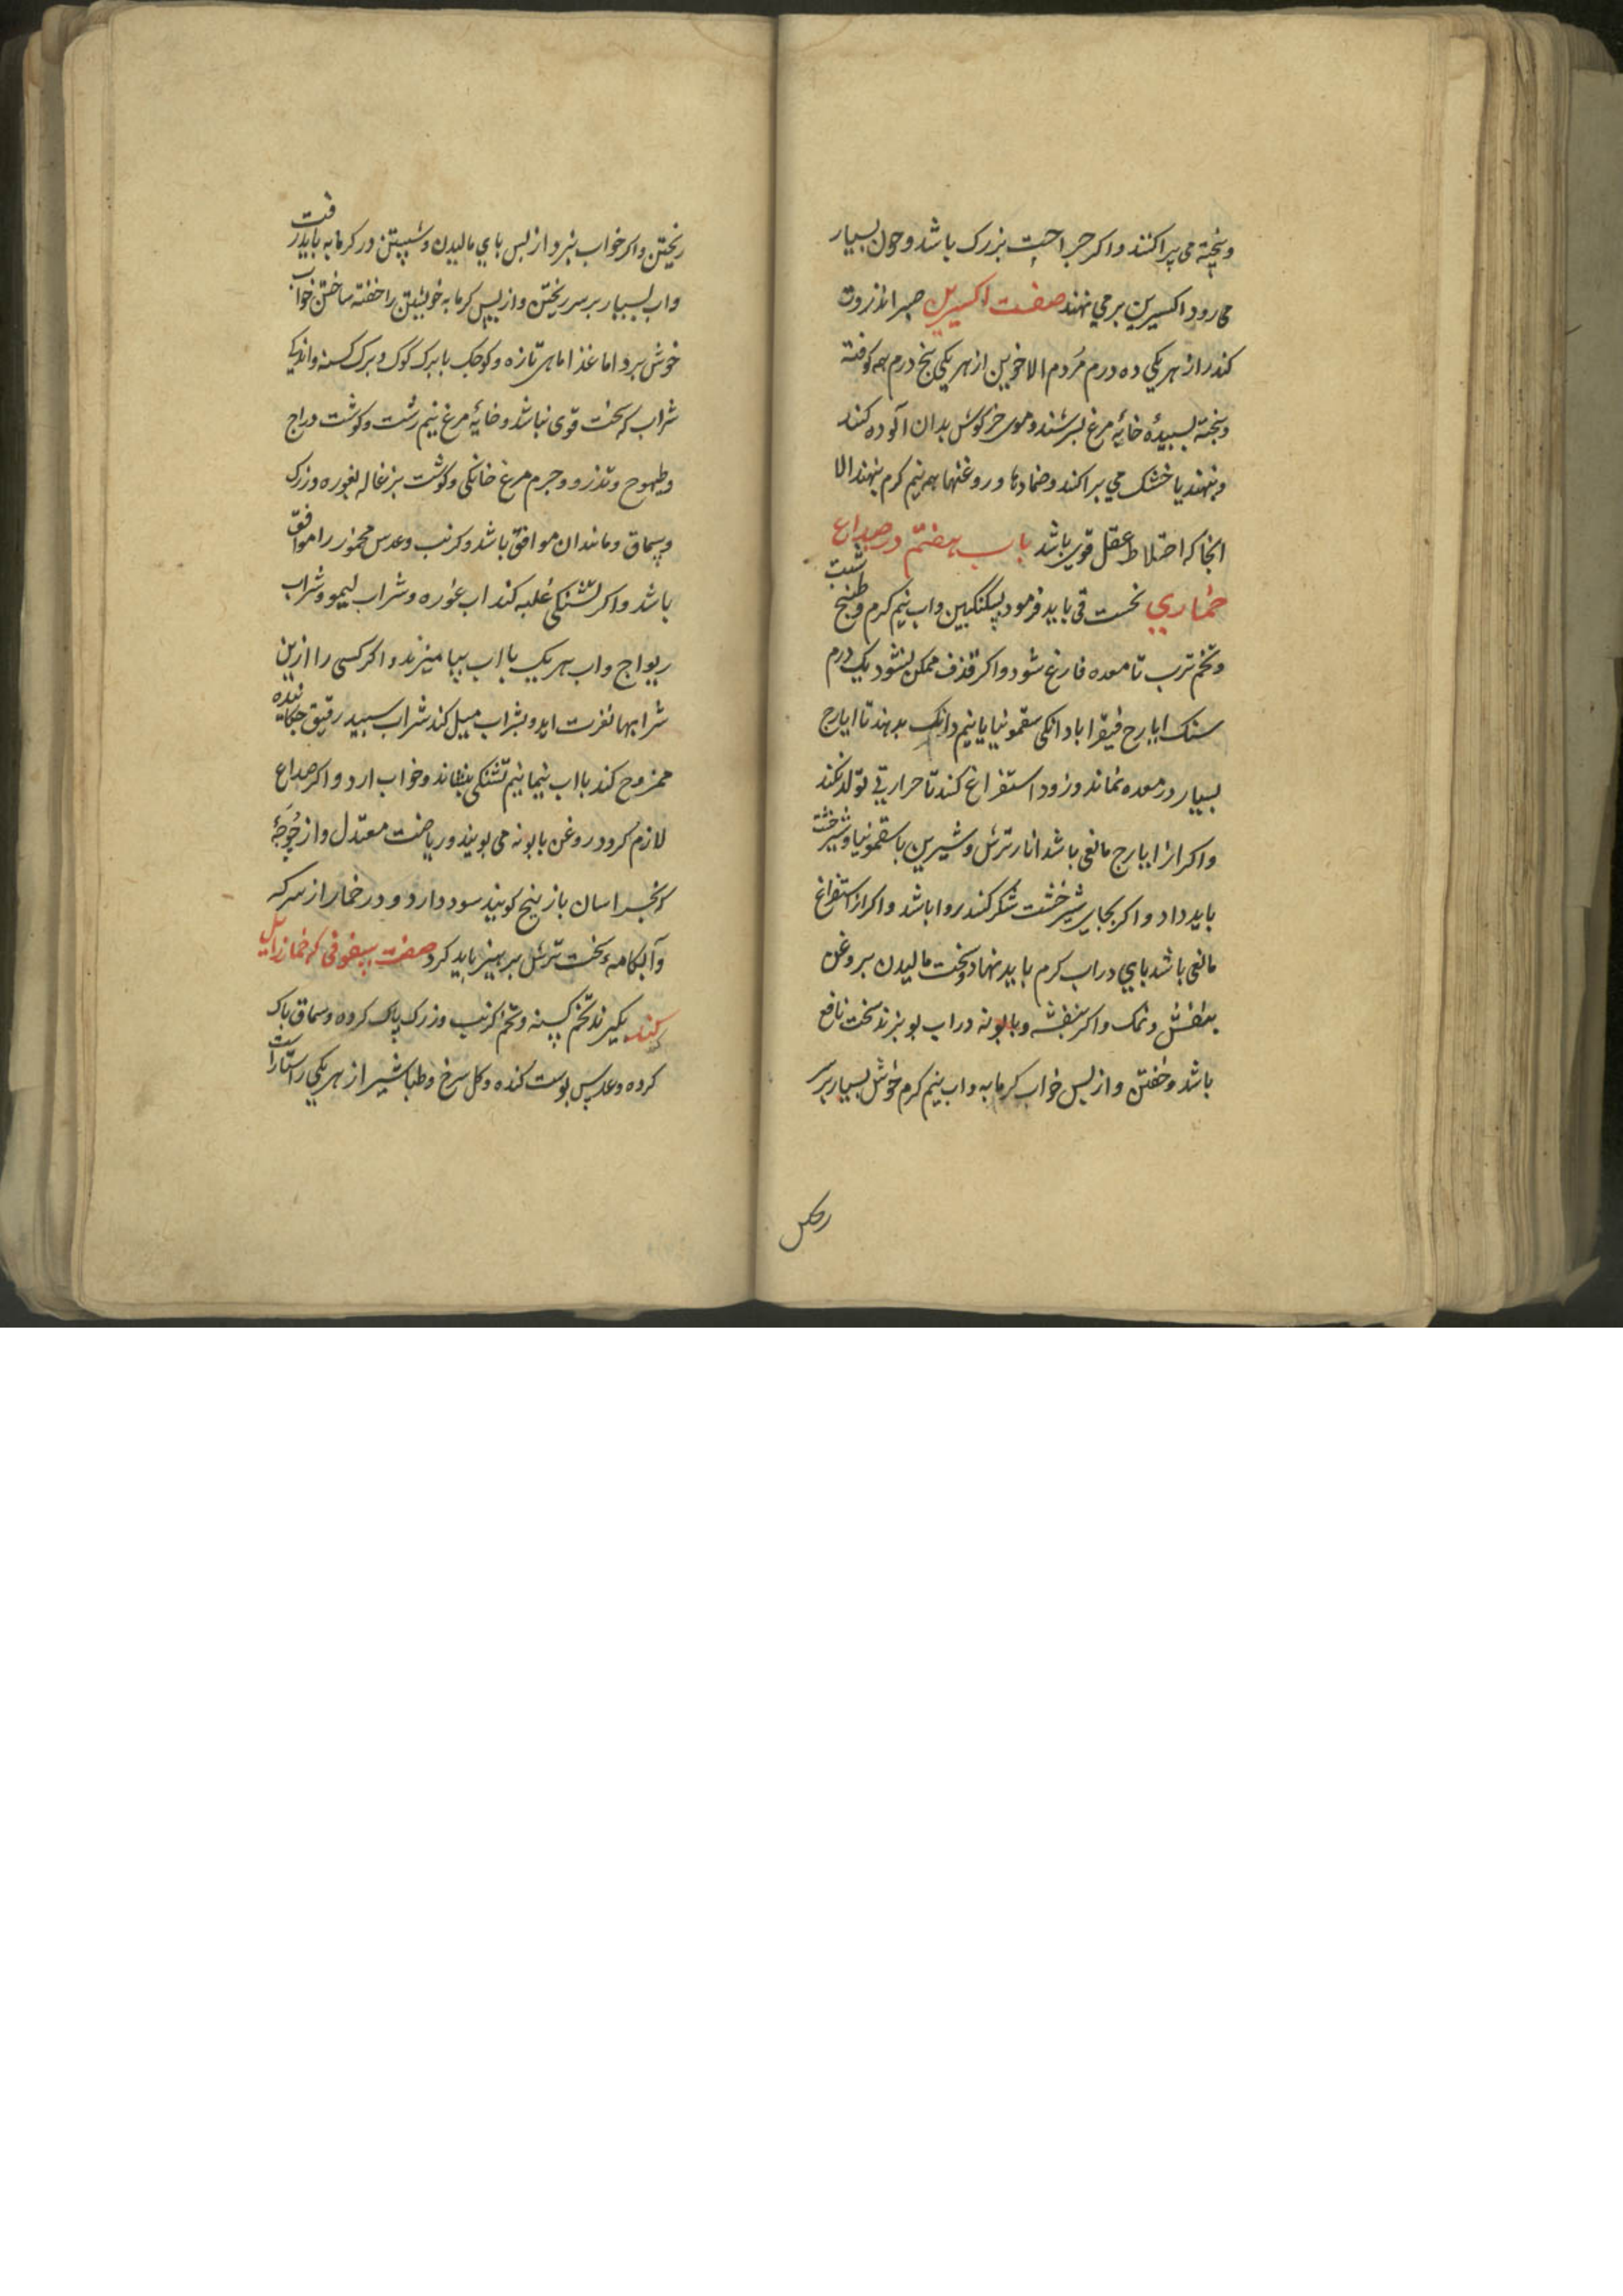 وبخته می پراکنند واکر جراحت بزرک باشد وخون بسیار
می رود اکسیرین برمی نهند صفت اکسیرین صبر انزروت
کندر از هر یکی ده درم مردم الاخوین از هر یکی پنج درم همه کوفته
وبیخته بسبیده خایه مرغ بسرشند وموی خرکوش بدان آلوده کنند
وبنهند یا خشک می براکنند وضمادها وروغنها همه نیم کرم بنهند الا
انجا که اختلاط عقل قوی باشد باب هفتم در صداع
خماری نخست قی باید فرمود بسکنکبین واب نیم کرم وطبیخ شبت
وتخم ترب تا معده فارغ شود واکر قذف ممکن نشود یک درم
سنک ایارج فیقرا با دانکی سقمونیا یا نیم دانک بدهند تا ایارج
بسیار در معده نماند وزود استفراغ کند تا حرارتی تولد نکند
واکر از ایارج مانعی باشد انار ترش وشیرین با سقمونیا وشیرخشت
باید داد واکر بجای شیرخشت شکر کنند روا باشد واکر از استفراغ
مانعی باشد پای در اب کرم باید نهاد وسخت مالیدن بروغن
بنفش ونمک واکر بنفشه وبابونه در اب بو بزند سخت نافع
باشد وخفتن واز بس خواب کرمابه واب نیم کرم خوش بسیار بر سر
ریختن
ریختن واکر خواب نبرد از بس پای مالیدن وشستن در کرمابه باید رفت
واب بسیار بر سر ریختن واز بس کرمابه خویشتن را خفته ساختن خواب
خوش برد اما غذا ماهی تازه وکوچک با برک کوک وبرک کسنه واندکی
شراب که سخت قوی نباشد وخایه مرغ نیم رشت وکوشت دراج
وطیهوج وتذرو وجرم مرغ خانکی وکوشت بزغاله بغوره وزرک
وسماق ومانند ان موافق باشد وکرنب وعدس مخمور را موافق
باشد واکر تشنکی غلبه کند اب غوره وشراب لیمو وشراب
ریواج واب هر یک با اب بیامیزند واکر کسی را ازین
شرابها نفرت اید وبشراب میل کند شراب سبید رقیق جکانیده
ممزوج کند با اب نیما نیم تشنکی بنشاند وخواب ارد واکر صداع
لازم کردد روغن بابونه می بویند وریاضت معتدل واز جوجه
که بخراسان بازینج کویند سود دارد ودر خمار از سرکه
وآبکامه وسخت ترش برهیز باید کرد صفت سفوفی که خمار زایل
کند بکیرند تخم کسنه وتخم کرنب وزرک پاک کرده وسماق باک
کرده وعدس بوست کنده وکل سرخ وطباشیر از هر یکی راستاراست